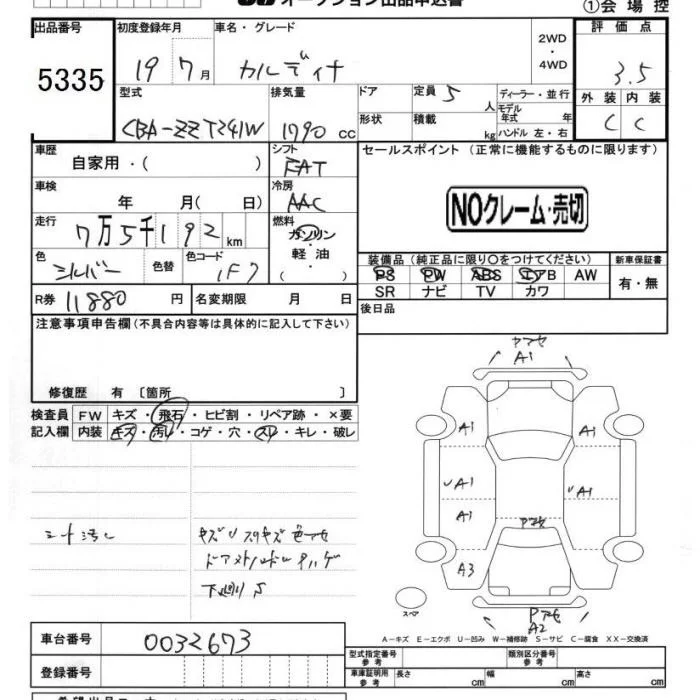 オークション出品申込書
①会場控
出品番号 初度登録年月 車名・グレード 2WD ・ 4WD 評価点
5335 19 7月 カルディナ 3.5
型式 排気量 ドア 定員 5人 ディーラー・並行 外装 内装
CBA-ZZT241W 1790 cc 形状 積載 kg モデル年式 年 ハンドル 左・右 C C
車歴 シフト セールスポイント (正常に機能するものに限ります)
自家用・( ) FAT
車検 冷房
年 月( 日) AAC NOクレーム・売切
走行 燃料
7万5千192km ガソリン・軽油・( )
装備品 (純正品に限り○をつけてください) 新車保証書
色 シルバー 色替 色コード 1F7 PS PW ABS エアB AW 有・無
SR ナビ TV カワ
R券 11880円 名変期限 月 日 後日品
注意事項申告欄 (不具合内容等は具体的に記入して下さい)
修復歴 有 〔箇所 〕
検査員 FW キズ・飛石・ヒビ割・リペア跡・×要
記入欄 内装 キズ・汚れ・コゲ・穴・スレ・キレ・破レ
A1
A1 A1
A1 A1
A1
A3
A2
スペア
シート汚レ
下廻りS
A-キズ E-エクボ U-凹み W-補修跡 S-サビ C-腐食 XX-交換済
車台番号 0032673
型式指定番号 参考 類別区分番号 参考
登録番号 車庫証明用 参考 長さ cm 幅 cm 高さ cm